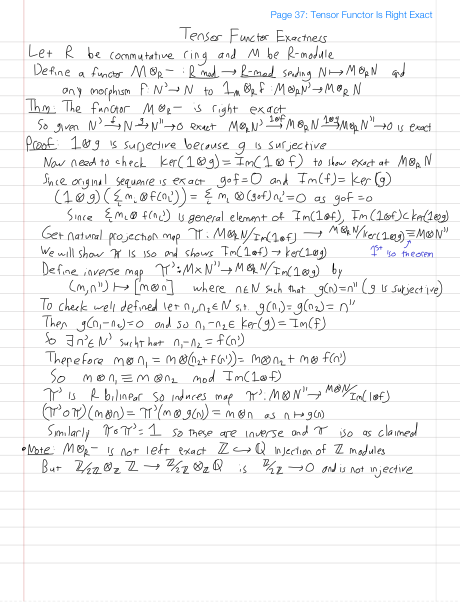 Page 37: Tensor Functor Is Right Exact
Tensor Functor Exactness
Let R be commutative ring and M be R-module
Define a functor M⊗_R − : R mod → R-mod sending N ↦ M⊗_R N and
any morphism f: N' → N to 1_M ⊗_R f : M⊗_R N' → M⊗_R N
Thm: The functor M⊗_R − is right exact
So given N' →^f N →^g N'' → 0 exact M⊗_R N' →^{1⊗f} M⊗_R N →^{1⊗g} M⊗_R N'' → 0 is exact
Proof: 1⊗g is surjective because g is surjective
Now need to check ker(1⊗g) = Im(1⊗f) to show exact at M⊗_R N
Since original sequence is exact g∘f = 0 and Im(f) = ker(g)
(1⊗g)(Σ m_i ⊗ f(n_i')) = Σ m_i ⊗ (g∘f)n_i' = 0 as g∘f = 0
Since Σ m_i ⊗ f(n_i') is general element of Im(1⊗f), Im(1⊗f) ⊂ ker(1⊗g)
Get natural projection map π: M⊗_R N/Im(1⊗f) → M⊗_R N/ker(1⊗g) ≅ M⊗N''
We will show π is iso and shows Im(1⊗f) = ker(1⊗g) 1st iso theorem
Define inverse map π': M×N'' → M⊗_R N/Im(1⊗g) by
(m,n'') ↦ [m⊗n] where n∈N such that g(n)=n'' (g is surjective)
To check well defined let n₁,n₂∈N s.t. g(n₁)=g(n₂)=n''
Then g(n₁-n₂)=0 and so n₁-n₂∈ ker(g)=Im(f)
So ∃n'∈N' such that n₁-n₂ = f(n')
Therefore m⊗n₁ = m⊗(n₂+f(n')) = m⊗n₂ + m⊗f(n')
So m⊗n₁ ≡ m⊗n₂ mod Im(1⊗f)
π' is R bilinear so induces map π': M⊗N'' → M⊗N/Im(1⊗f)
(π'∘π)(m⊗n) = π'(m⊗g(n)) = m⊗n as n ↦ g(n)
Similarly π∘π' = 1 so these are inverse and π iso as claimed
• Note: M⊗_R − is not left exact ℤ ↪ ℚ injection of ℤ modules
But ℤ/2ℤ ⊗_ℤ ℤ → ℤ/2ℤ ⊗_ℤ ℚ is ℤ/2ℤ → 0 and is not injective